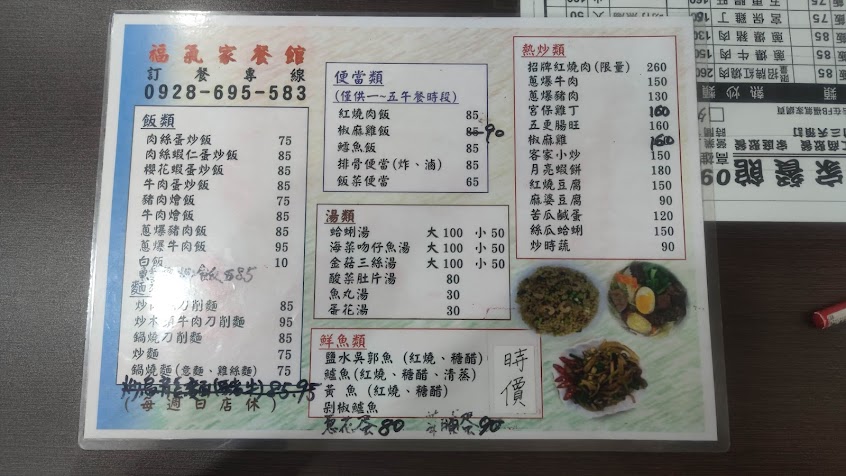 福氣家餐館
訂餐專線
0928-695-583
飯類
肉絲蛋炒飯 75
肉絲蝦仁蛋炒飯 85
櫻花蝦蛋炒飯 85
牛肉蛋炒飯 85
豬肉燴飯 75
牛肉燴飯 85
蔥爆豬肉飯 85
蔥爆牛肉飯 95
白飯 10
飯 85
刀削麵 85
牛肉刀削麵 95
鍋燒刀削麵 75
炒麵 75
鍋燒麵(意麵、雞絲麵) 75
85.95
(每週日店休)
便當類
(僅供一~五午餐時段)
紅燒肉飯 85
椒麻雞飯 85 90
鱈魚飯 85
排骨便當(炸、滷) 85
飯菜便當 65
湯類
蛤蜊湯 大100 小50
海菜吻仔魚湯 大100 小50
金菇三絲湯 大100 小50
酸菜肚片湯 80
魚丸湯 30
蛋花湯 30
鮮魚類
鹽水吳郭魚(紅燒、糖醋)
鱸魚(紅燒、糖醋、清蒸)
黃 魚(紅燒、糖醋)
剁椒鱸魚
時價
蔥花蛋80
蛋90
熱炒類
招牌紅燒肉(限量) 260
蔥爆牛肉 150
蔥爆豬肉 130
宮保雞丁 160
五更腸旺 160
椒麻雞 160
客家小炒 150
月亮蝦餅 180
紅燒豆腐 150
麻婆豆腐 90
苦瓜鹹蛋 120
絲瓜蛤蜊 150
炒時蔬 90